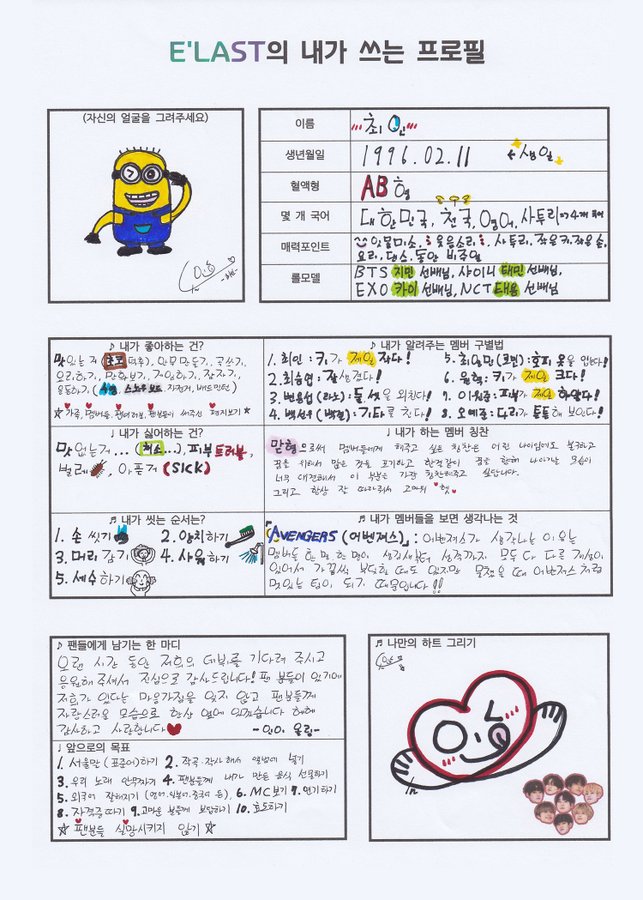 E'LAST의 내가 쓰는 프로필
(자신의 얼굴을 그려주세요)
이름
최인
생년월일
1996.02.11 ←생일
혈액형
AB형
몇 개 국어
대한민국, 천국, 영어, 사투리
매력포인트
눈웃음소리, 사투리, 작은 키, 작은 손,
요리, 댄스, 동안 비주얼
롤모델
BTS 지민 선배님, 샤이니 태민 선배님,
EXO 카이 선배님, NCT 태용 선배님
♪ 내가 좋아하는 건?
맛있는 거, 안무 만들기, 글쓰기,
요리하기, 만화보기, 게임하기, 잠자기,
운동하기 (수영, 스노우보드, 자전거, 배드민턴)
☆가족, 멤버들, 팬 여러분, 팬분들이 써주신 편지보기☆
♩ 내가 싫어하는 건?
맛 없는 거... (채소...), 피부 트러블,
벌레, 아픈 거 (SICK)
♬ 내가 씻는 순서는?
1. 손 씻기 2. 양치하기
3. 머리 감기 4. 샤워하기
5. 세수하기
♪ 내가 알려주는 멤버 구별법
1. 최인 : 키가 제일 작다!
2. 최승엽 : 잘생겼다!
4. 백선우 (백결) : 기타를 친다!
5. 최일망 (로민) : 호피 옷을 입는다!
6. 윤혁 : 키가 제일 크다!
7. 이원준 : 피부가 제일 하얗다!
8. 오예준 : 다리가 튼튼해 보인다!
♬ 내가 하는 멤버 칭찬
맏형으로써 멤버들에게 해주고 싶은 칭찬은 어린 나이임에도 불구하고
꿈을 위해서 많은 것을 포기하고 한결같이 꿈을 향해 나아가는 모습이
너무 대견해서 이 부분은 가장 칭찬해주고 싶습니다.
그리고 항상 잘 따라와줘서 고마워
♬ 내가 멤버들을 보면 생각나는 것
AVENGERS (어벤져스) : 어벤져스가 생각나는 이유는
멤버들 한 명 한 명이 성격부터 성격까지 모두 다 다른 개성이
있어서 가끔씩 부딪힐 때도 있지만 뭉쳤을 때 어벤져스처럼
멋있는 팀이 되기 때문입니다!!
♪ 팬들에게 남기는 한 마디
오랜 시간 동안 저희의 데뷔를 기다려 주시고
응원해 주셔서 진심으로 감사드립니다! 팬 분들이 있기에
저희가 있다는 마음가짐을 잊지 않고 팬분들께
자랑스러운 모습으로 항상 옆에 있겠습니다
감사하고 사랑합니다 -최인 올림-
♩ 앞으로의 목표
1. 서울말 (표준어)하기 2. 작곡·작사해서 앨범에 넣기
3. 우리 노래 안무짜기 4. 팬분들께 내가 만든 음식 선물하기
5. 외국어 잘해지기 (영어, 일본어, 중국어 등) 6. MC보기 7. 연기하기
8. 자격증 따기 9. 고마운 분들께 보답하기 10. 효도하기
☆팬분들 실망시키지 않기☆
♬ 나만의 하트 그리기